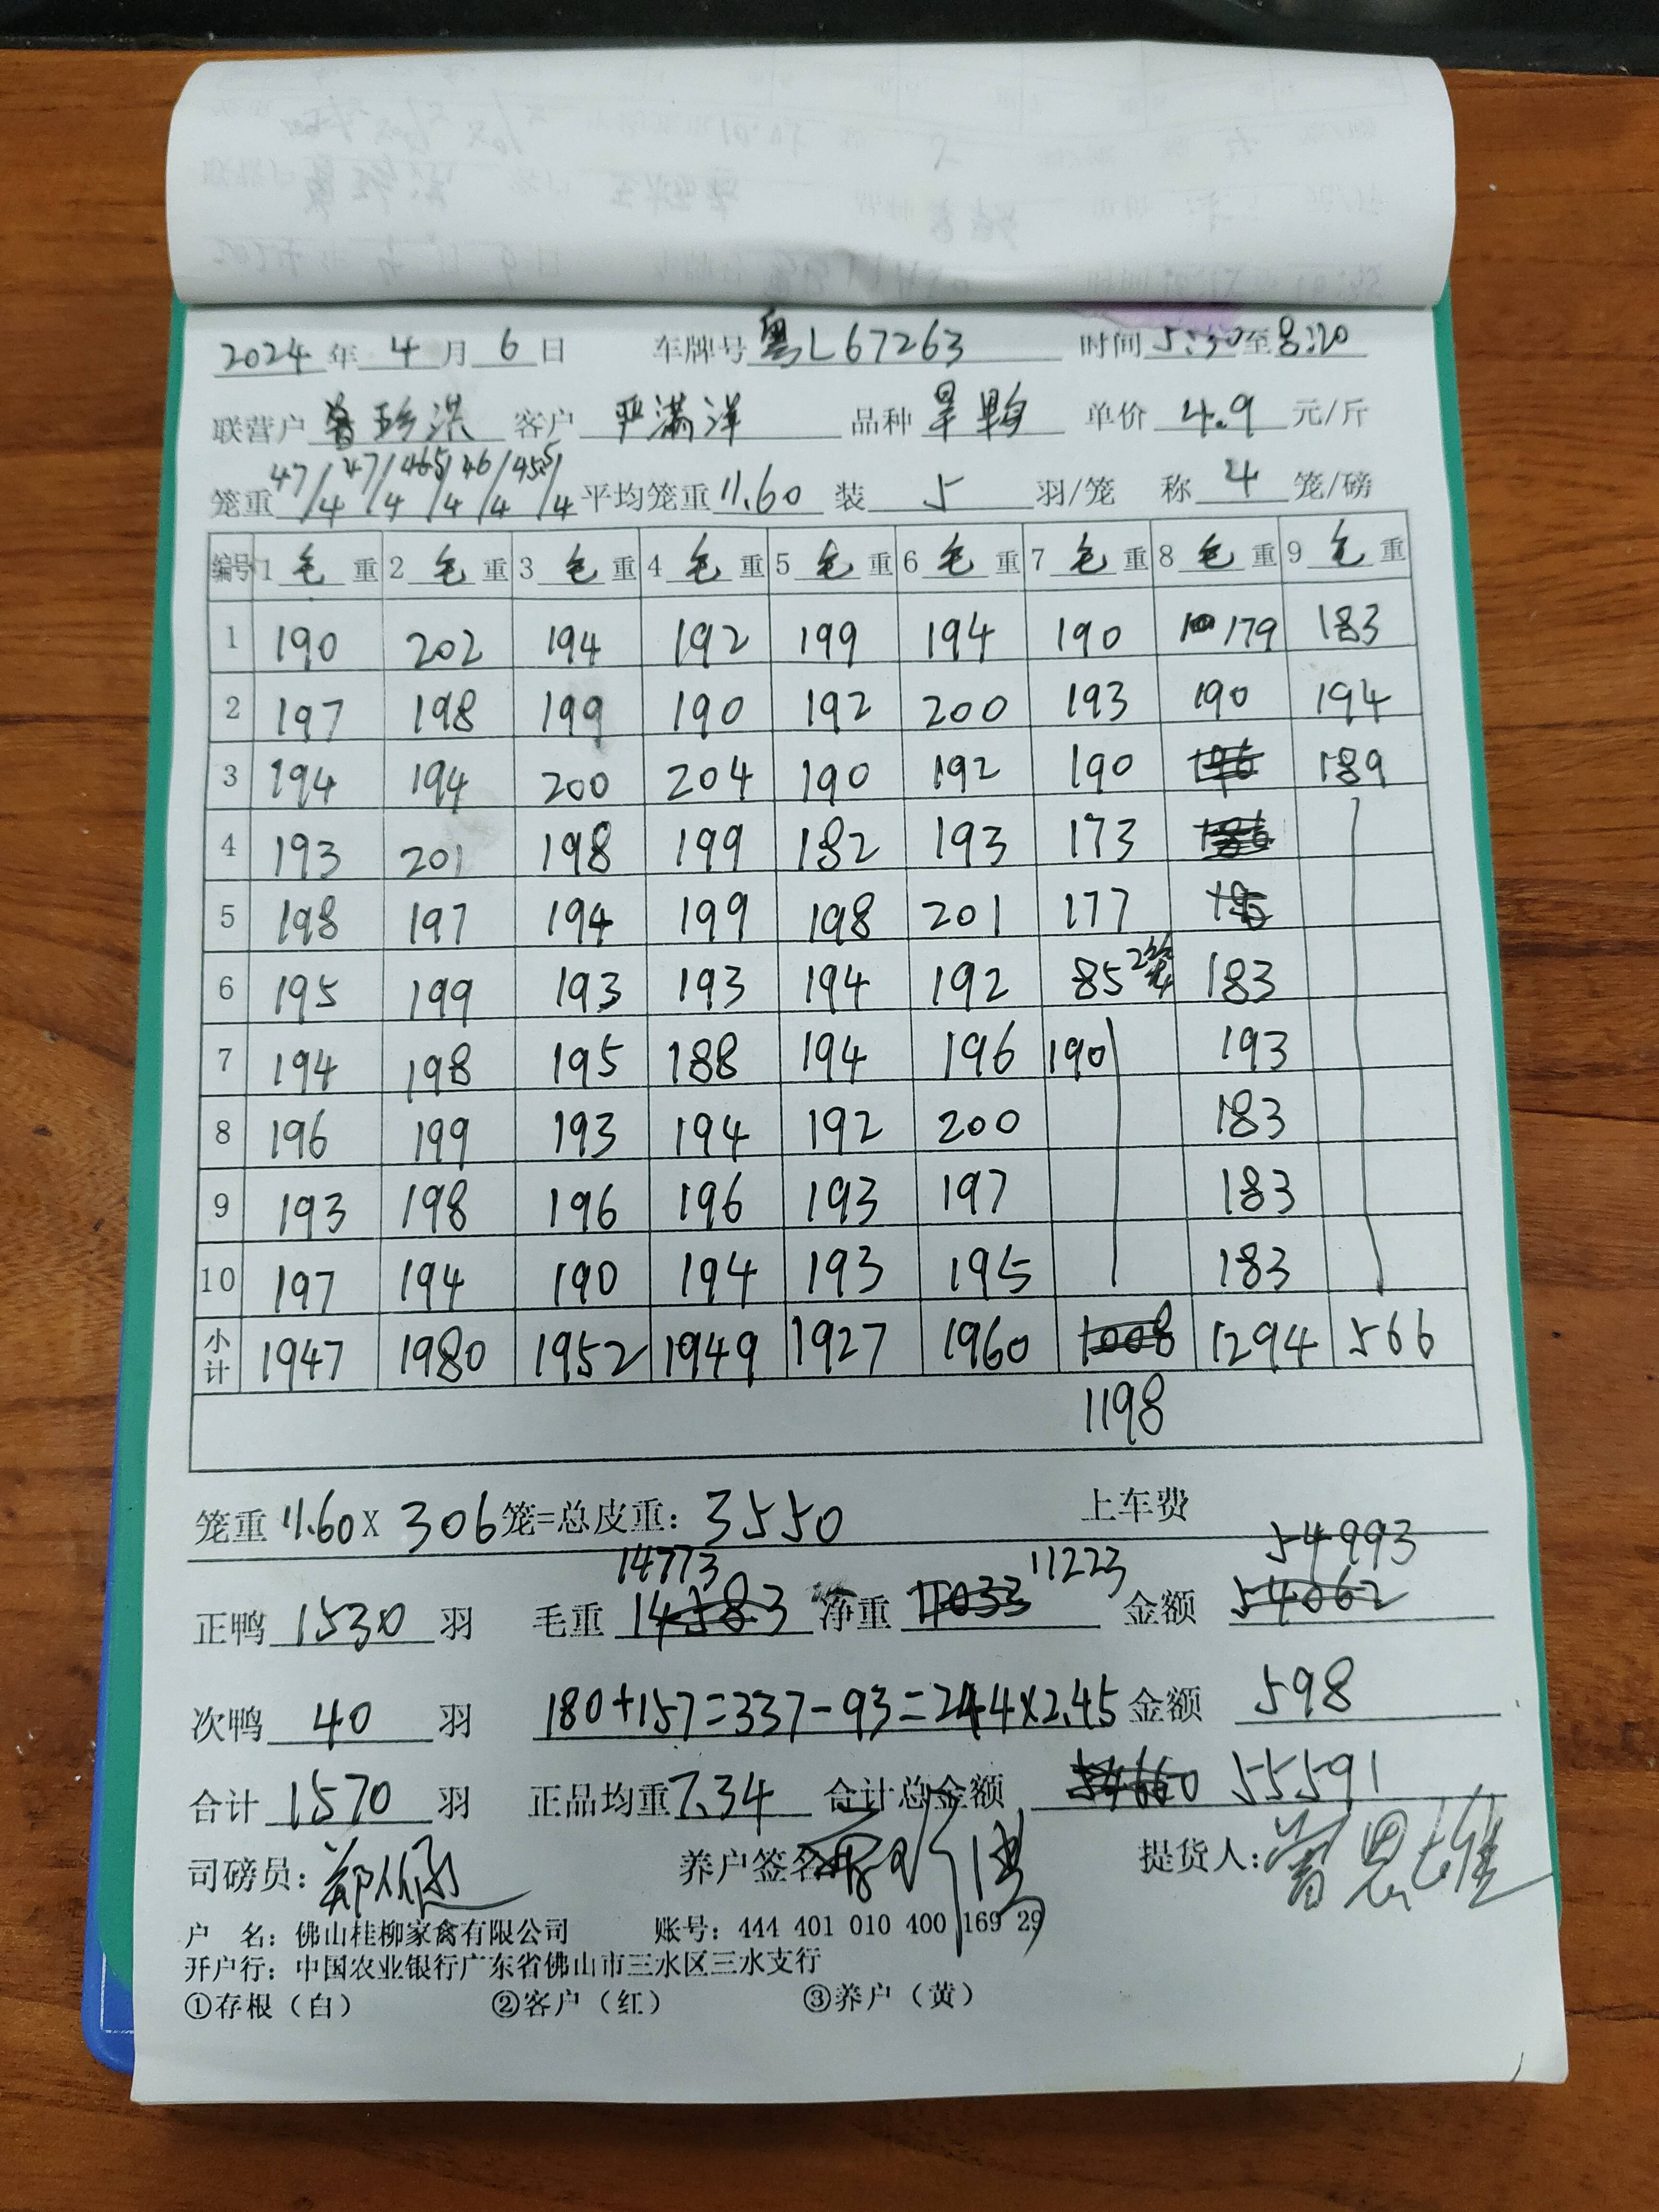 2024 年 4 月 6 日 车牌号 粤L67263 时间 5:30 至 8:20
联营户 曾珍洪 客户 严满洋 品种 旱鸭 单价 4.9 元/斤
笼重 47/4 47/4 465/4 46/4 455/4 平均笼重 11.60 装 5 羽/笼 称 4 笼/磅
编号 1 毛 重 2 毛 重 3 毛 重 4 毛 重 5 毛 重 6 毛 重 7 毛 重 8 毛 重 9 毛 重
1 190 202 194 192 199 194 190 179 183
2 197 198 199 190 192 200 193 190 194
3 194 194 200 204 190 192 190 196 189
4 193 201 198 199 182 193 173 186
5 198 197 194 199 198 201 177
6 195 199 193 193 194 192 85 2笼 183
7 194 198 195 188 194 196 190 193
8 196 199 193 194 192 200 183
9 193 198 196 196 193 197 183
10 197 194 190 194 193 195 183
小计 1947 1980 1952 1949 1927 1960 1008 1294 566
1198
笼重 11.60 X 306 笼=总皮重: 3550 上车费
14773 11223 54993
正鸭 1530 羽 毛重 14583 净重 11033 金额 54062
次鸭 40 羽 180+157=337-93=244×2.45 金额 598
合计 1570 羽 正品均重 7.34 合计总金额 54660 55591
司磅员: 养户签名 提货人: 曾思雄
户 名: 佛山桂柳家禽有限公司 账号: 444 401 010 400 169 29
开户行: 中国农业银行广东省佛山市三水区三水支行
①存根（白） ②客户（红） ③养户（黄）